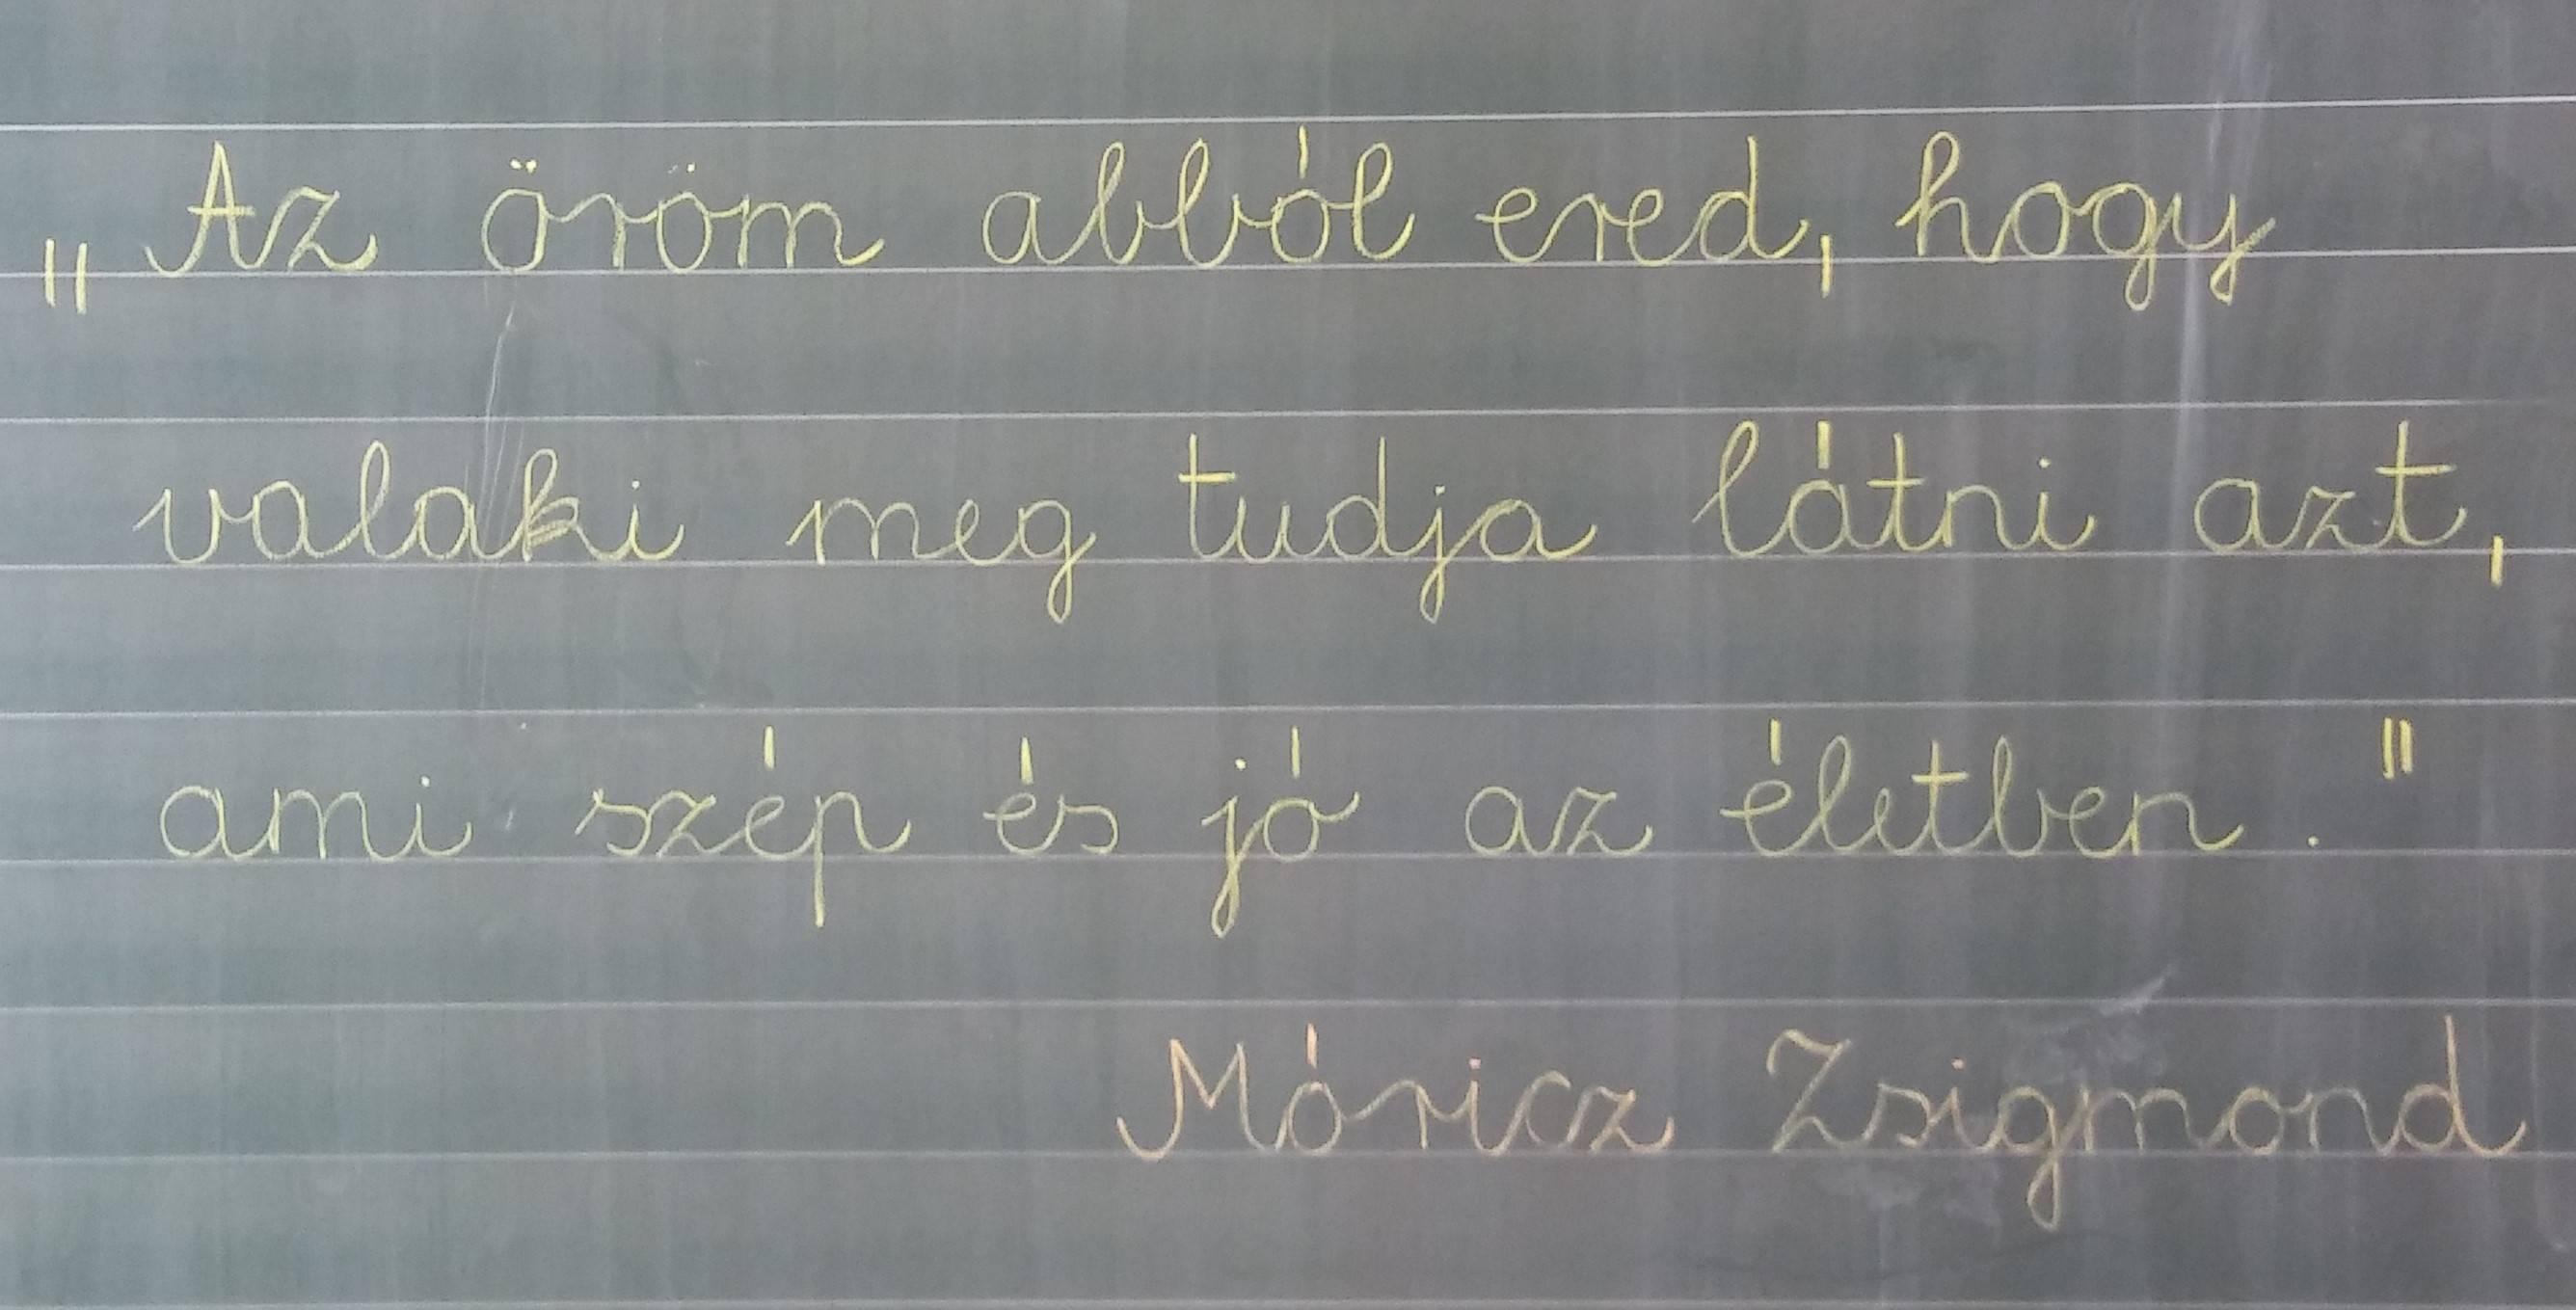 „Az öröm abból ered, hogy
valaki meg tudja látni azt,
ami szép és jó az életben."
Móricz Zsigmond